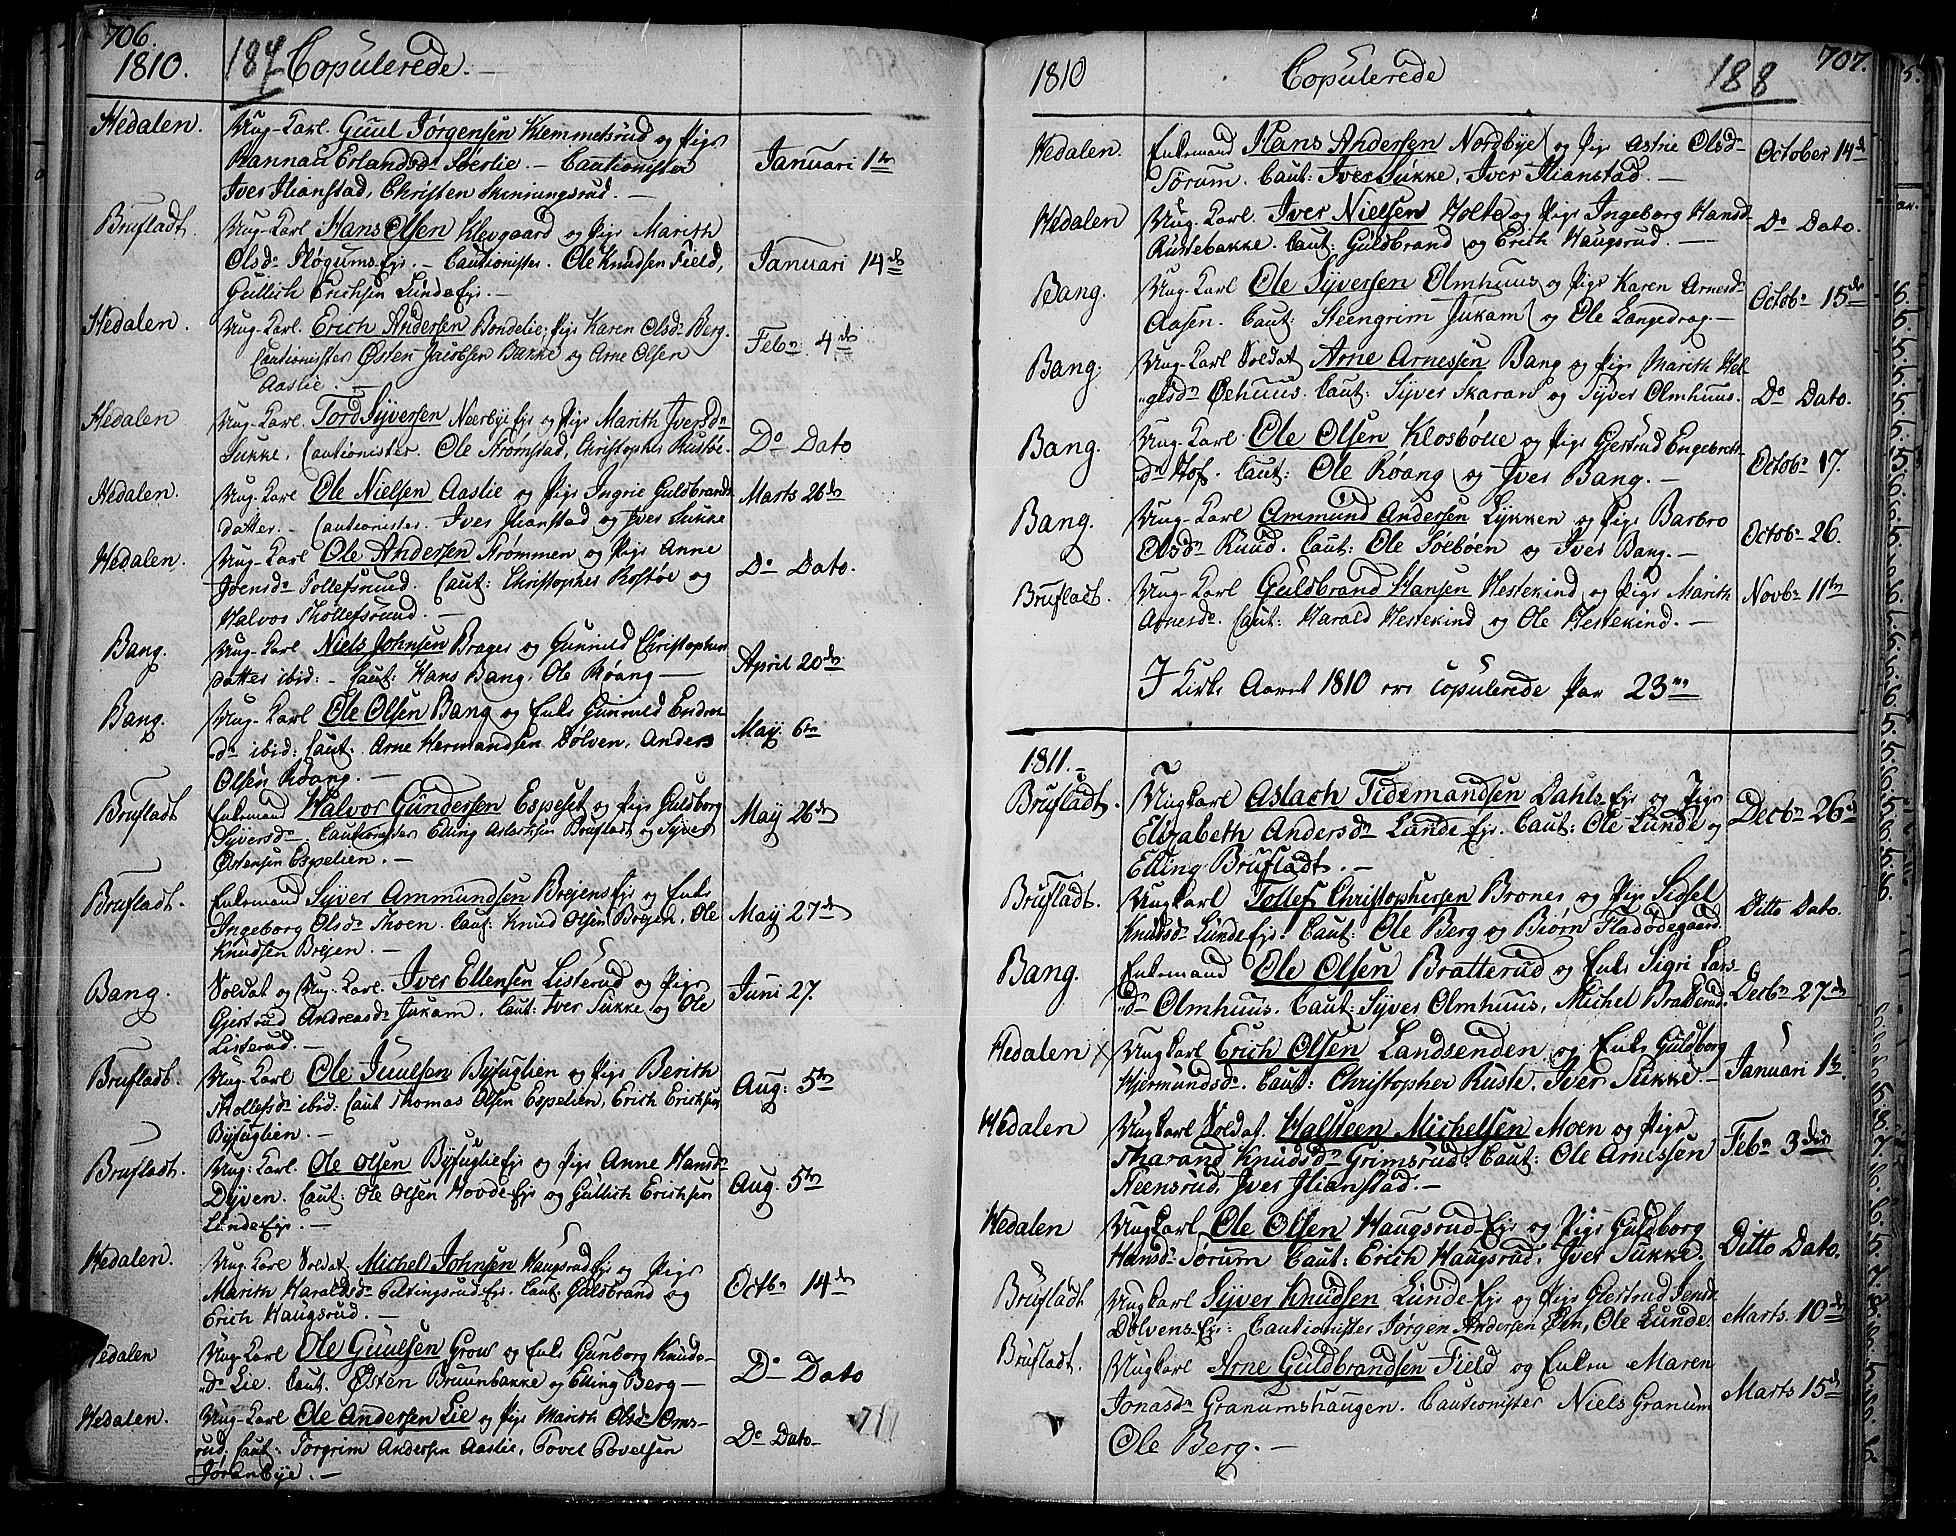 706.
1810. 187 Copulerede.
Hedalen. Ung-Karl. Guul Jørgensen Klemmetsrud og Pige
Rannau Erlandsdr Søerlie. — Cautionister
Iver Ilianstad, Christen Skinningsrud. — Januari 1te
Brufladt. Ung-Karl Hans Olsen Klevgaard og Pige Marith
Olsdr Fløgums Eje. — Cautionister. Ole Knudsen Field,
Gullich Erichsen Lunde Eje. — Januari 14de
Hedalen. Ung-Karl. Erich Andersen Bondelie, Pige Karen Olsdr Berg.
Cautionister Østen Jacobsen Bakke og Arne Olsen
Aaslie. — Febr: 4de
Hedalen Ung-Karl. Tord Syversen Neerbye Eje og Pige Marith Iversdr
Sukke. Cautionister. Ole Strømstad, Christopher Rustøe. Do Dato
Hedalen. Ung-Karl Ole Nielsen Aaslie og Pige Ingrie Guldbrands
datter. — Cautionister. Iver Ilianstad og Iver Sukke Marts 26de
Hedalen. Ung-Karl Ole Andersen Strømmen og Pige Anne
Joensdr Tollefsrund. Caut: Christopher Rostøe og
Halvor Thollefsrund. — Do Dato.
Bang. Ung-Karl Niels Johnsen Brager og Gunnild Christophers
datter ibid: — Caut: Hans Bang, Ole Røang — April 20de
Bang. Ung-Karl Ole Olsen Bang og Enke Gunnild Endres
dr ibid: Caut: Arne Hermandsen Dølven, Anders
Olsen Røang. — May 6te
Brufladt Enkemand Halvor Gundersen Espeset og Pige Guldborg
Syversdr Cautionister Elling Aslachsen Brufladt og Syver
Østensen Espelien. — May 26de
Brufladt. Enkemand Syver Ammundsen Brejens Eje og Enke
Ingeborg Olsdr Moen. Caut: Knud Olsen Brejen, Ole
Knudsen Brejen. — May 27de
Bang. Soldat og Ung-Karl. Iver Ellensen Listerud og Pige
Gjertrud Andreasdr Jukam. Caut: Iver Sukke og Ole
Listerud. — Juni 27.
Brufladt. Ung-Karl Ole Juulsen Byfuglien og Pige Berith
Thollefsdr ibid: Caut Thomas Olsen Espelien, Erich Erichsen
Byfuglien. — Aug: 5te
Brufladt. Ung-Karl. Ole Olsen Byfuglie Eje og Pige Anne Hansdr
Dyven. Caut: Ole Olsen Hovde Eje og Gullich Erichsen
Lunde Eje. — Aug. 5te
Hedalen. Ung-Karl Soldat. Michel Johnsen Haugsrud Eje og Pige
Marith Haraldsdr Piltingsrud Eje. Caut. Guldbrand og
Erich Haugsrud. — Octbr 14de
Hedalen Ung-Karl Ole Guulsen Grow og Enke Gunborg Knuds-
dr Lie. Caut. Østen Bruunbakke og Elling Berg — Do Dato
Hedalen. Ung-Karl Ole Andersen Lie og Pige Marith Olsdr Oms-
rud. Caut: Torgrim Andersen Aaslie, Povel Povelsen
Jøranbye. — Do Dato —
1810 Copulerede 188 707.
Hedalen. Enkemand Hans Andersen Nordbye og Pige Astrie Olsdr
Sørum. Caut: Iver Sukke, Iver Ilianstad. — October 14de
Hedalen Ung-Karl. Iver Nielsen Holte og Pige Ingeborg Hansdr
Rustebakke. Caut: Guldbrand og Erich Haugsrud. — Do Dato.
Bang. Ung-Karl Ole Syversen Olmhuus og Pige Karen Arnesdr
Aasen. Caut: Steengrim Jukam og Ole Langedrag. — Octobr 15de
Bang. Ung-Karl Soldat Arne Arnessen Bang og Pige Marith Hel-
gesdr Øehuus. Caut: Syver Skaran og Syver Olmhuus. Do Dato.
Bang. Ung-Karl Ole Olsen Klosbølie og Pige Gjertrud Engebrets
dr Hof. Caut: Ole Røang og Iver Bang. — Octobr 17.
Bang. Ung-Karl Ammund Andersen Lykken og Pige Barbro
Olsdr Ruud. Caut: Ole Sølbøen og Iver Bang. — Octobr 26.
Brufladt. Ung-Karl Guldbrand Hansen Hestekind og Pige Marith
Arnesdr. Caut: Harald Hestekind og Ole Hestekind. — Novbr 11te
I Kirke Aaret 1810 ere Copulerede Par 23
1811. —
Brufladt. Ungkarl Aslach Tidemandsen Dahls Eje og Pige
Elizabeth Andersdr Lunde Eje. Caut: Ole Lunde og
Elling Brufladt. — Decbr 26de
Brufladt. Ungkarl Tollef Christophersen Brones og Pige Sidsel
Knudsdr Lunde Eje. Caut: Ole Berg og Biørn Fladødegaard. Ditto Dato.
Bang. Enkemand Ole Olsen Bratterud og Enke Sigri Lars-
dr Olmhuus. Caut: Syver Olmhuus, Michel Bratterud. Decbr 27de
Hedalen x Ungkarl Erich Olsen Landsenden og Enke Guldborg
Hjermundsdr. Caut: Christopher Ruste, Iver Sukke. — Januari 1te
Hedalen Ungkarl Soldat. Halsteen Michelsen Moen og Pige
Tharand Knudsdr Grimsrud. Caut: Ole Arnessen
Steensrud, Iver Ilianstad. — Febr 3die
Hedalen Ungkarl Ole Olsen Haugsrud Eje og Pige Guldborg
Hansdr Sorum Caut: Erich Haugsrud, Iver Sukke. Ditto Dato.
Brufladt Ungkarl Syver Knudsen Lunde Eje og Pige Giertrud Jensdr
Dølvens Eje: Cautionister Jørgen Andersen Øen, Ole Lunde. Marts. 10de
Brufladt. Ungkarl Arne Guldbrandsen Field og Enken Maren
Jonasdr Granumshaugen. Cautionister Niels Granum
Ole Berg. — Marts 15de